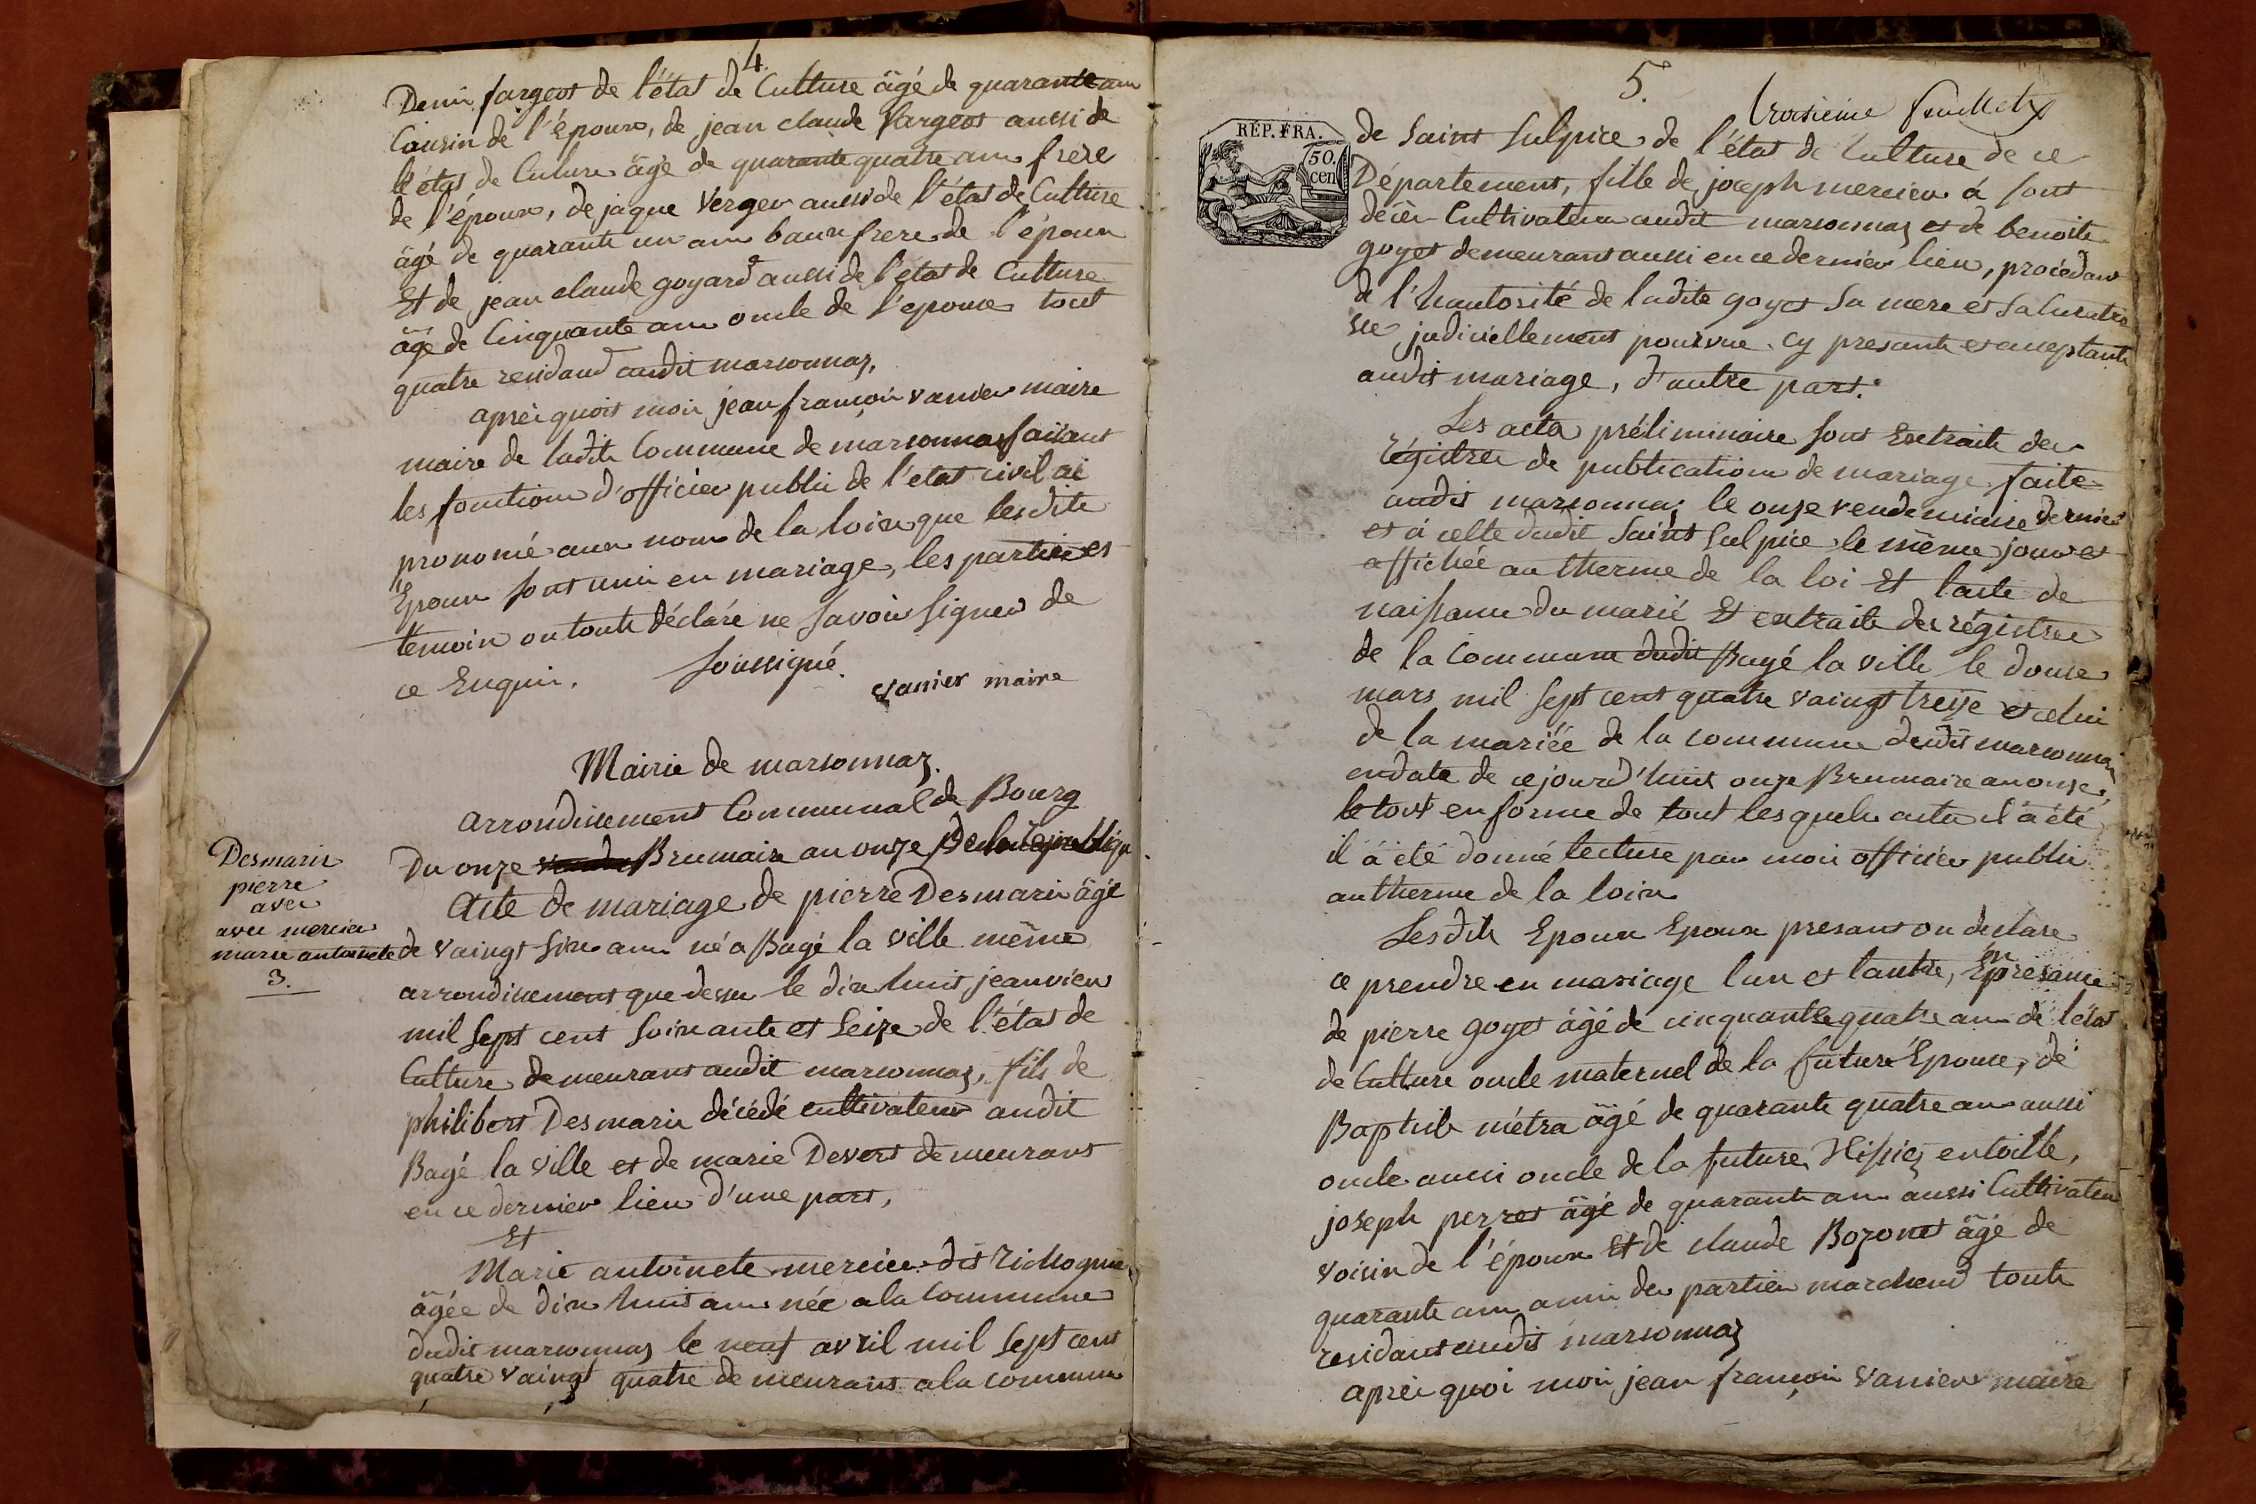 4.
Denis fargeot de l'état de Culture âgé de quarante ans
Cousin de l'époux, de jean claude Vargeot aussi de
l'état de Culture âgé de quarante quatre ans frere
de l'époux, de jaque Verger aussi de l'état de Culture
âgé de quarante un ans baux frere de l'époux
Et de jean claude goyard aussi de l'état de Culture
âgé de Cinquante ans oncle de l'epouse tout
quatre residand audit marsonnaz,
après quoit moi jean françois vanier maire
maire de ladite Commune de marsonnaz faisant
les fonctions d'officier public de l'état civil ai
prononcé aux nom de la loix que lesdits
Epoux sont unis en mariage, les parties et
temoin on touts déclaré ne savoir signer de
ce Enquis. soussigné.
vanier maire
Mairie de marsonnaz.
arrondissement Communal de Bourg
Du onze Brumaire an onze De la République
Desmaris
pierre
avec
avec mercier
marie antoinete
3.
Acte de mariage de pierre Desmaris âgé
de vaingt six ans né a Bagé la ville même
arrondissement que dessus le dix huit jeanvier
mil sept cent soixante et seize de l'état de
Culture demeurant audit marsonnaz, fils de
philibert Desmaris décédé cultivateur audit
Bagé la ville et de marie Devert demeurant
en ce dernier lieu d'une part,
Et
Marie antoinete mercier dit
âgée de dix huit ans née a la Commune
dudit marsonnaz le neuf avril mil sept cent
quatre vaingt quatre demeurant a la commune
5.
troisieme feuillet
REP. FRA.
50.
cen
de Saint Sulpice de l'état de Culture de ce
Département, fille de joseph mercier
Cultivateur audit marsonnaz et de benoite
goyet demeurant aussi en ce dernier lieu, procédant
de l'hautorité de ladite goyet sa mere et sa curatri
judiciellement pourvue. cy presante et acceptante
audit mariage, d'autre part.
Les actes préliminaire sont Extraits des
régistres de publications de mariage faite
audit marsonnaz le onze vendemiaire dernier
et a celle dudit Saint Sulpice le même jour et
affichée au therme de la loi Et l'acte de
naissance du marié Et extraite des régistres
de la Commune dudit Bagé la ville le douse
mars mil sept cent quatre vaingt treize et celui
de la mariée de la commune dudit marsonnaz
en date de ce jourd'huit onze Brumaire an onse
le tout en forme de tout lesquels actes il a été
il à été donné lecture par moi officier public
au therme de la loix
Lesdits Epoux Epoux presant on declare
ce prendre en mariage l'un et l'autre, En presance
de pierre goyet âgé de cinquante quatre ans de l'état
de Culture oncle maternel de la future Epouse, de
Baptiste métra âgé de quarante quatre ans aussi
oncle aussi oncle de la future, en toille,
joseph perret âgé de quarante ans aussi Cultivateur
voisin de l'époux Et de claude Bozonet âgé de
quarante ans ami des parties marchand touts
residant audit marsonnaz
après quoi moi jean françois vanier maire